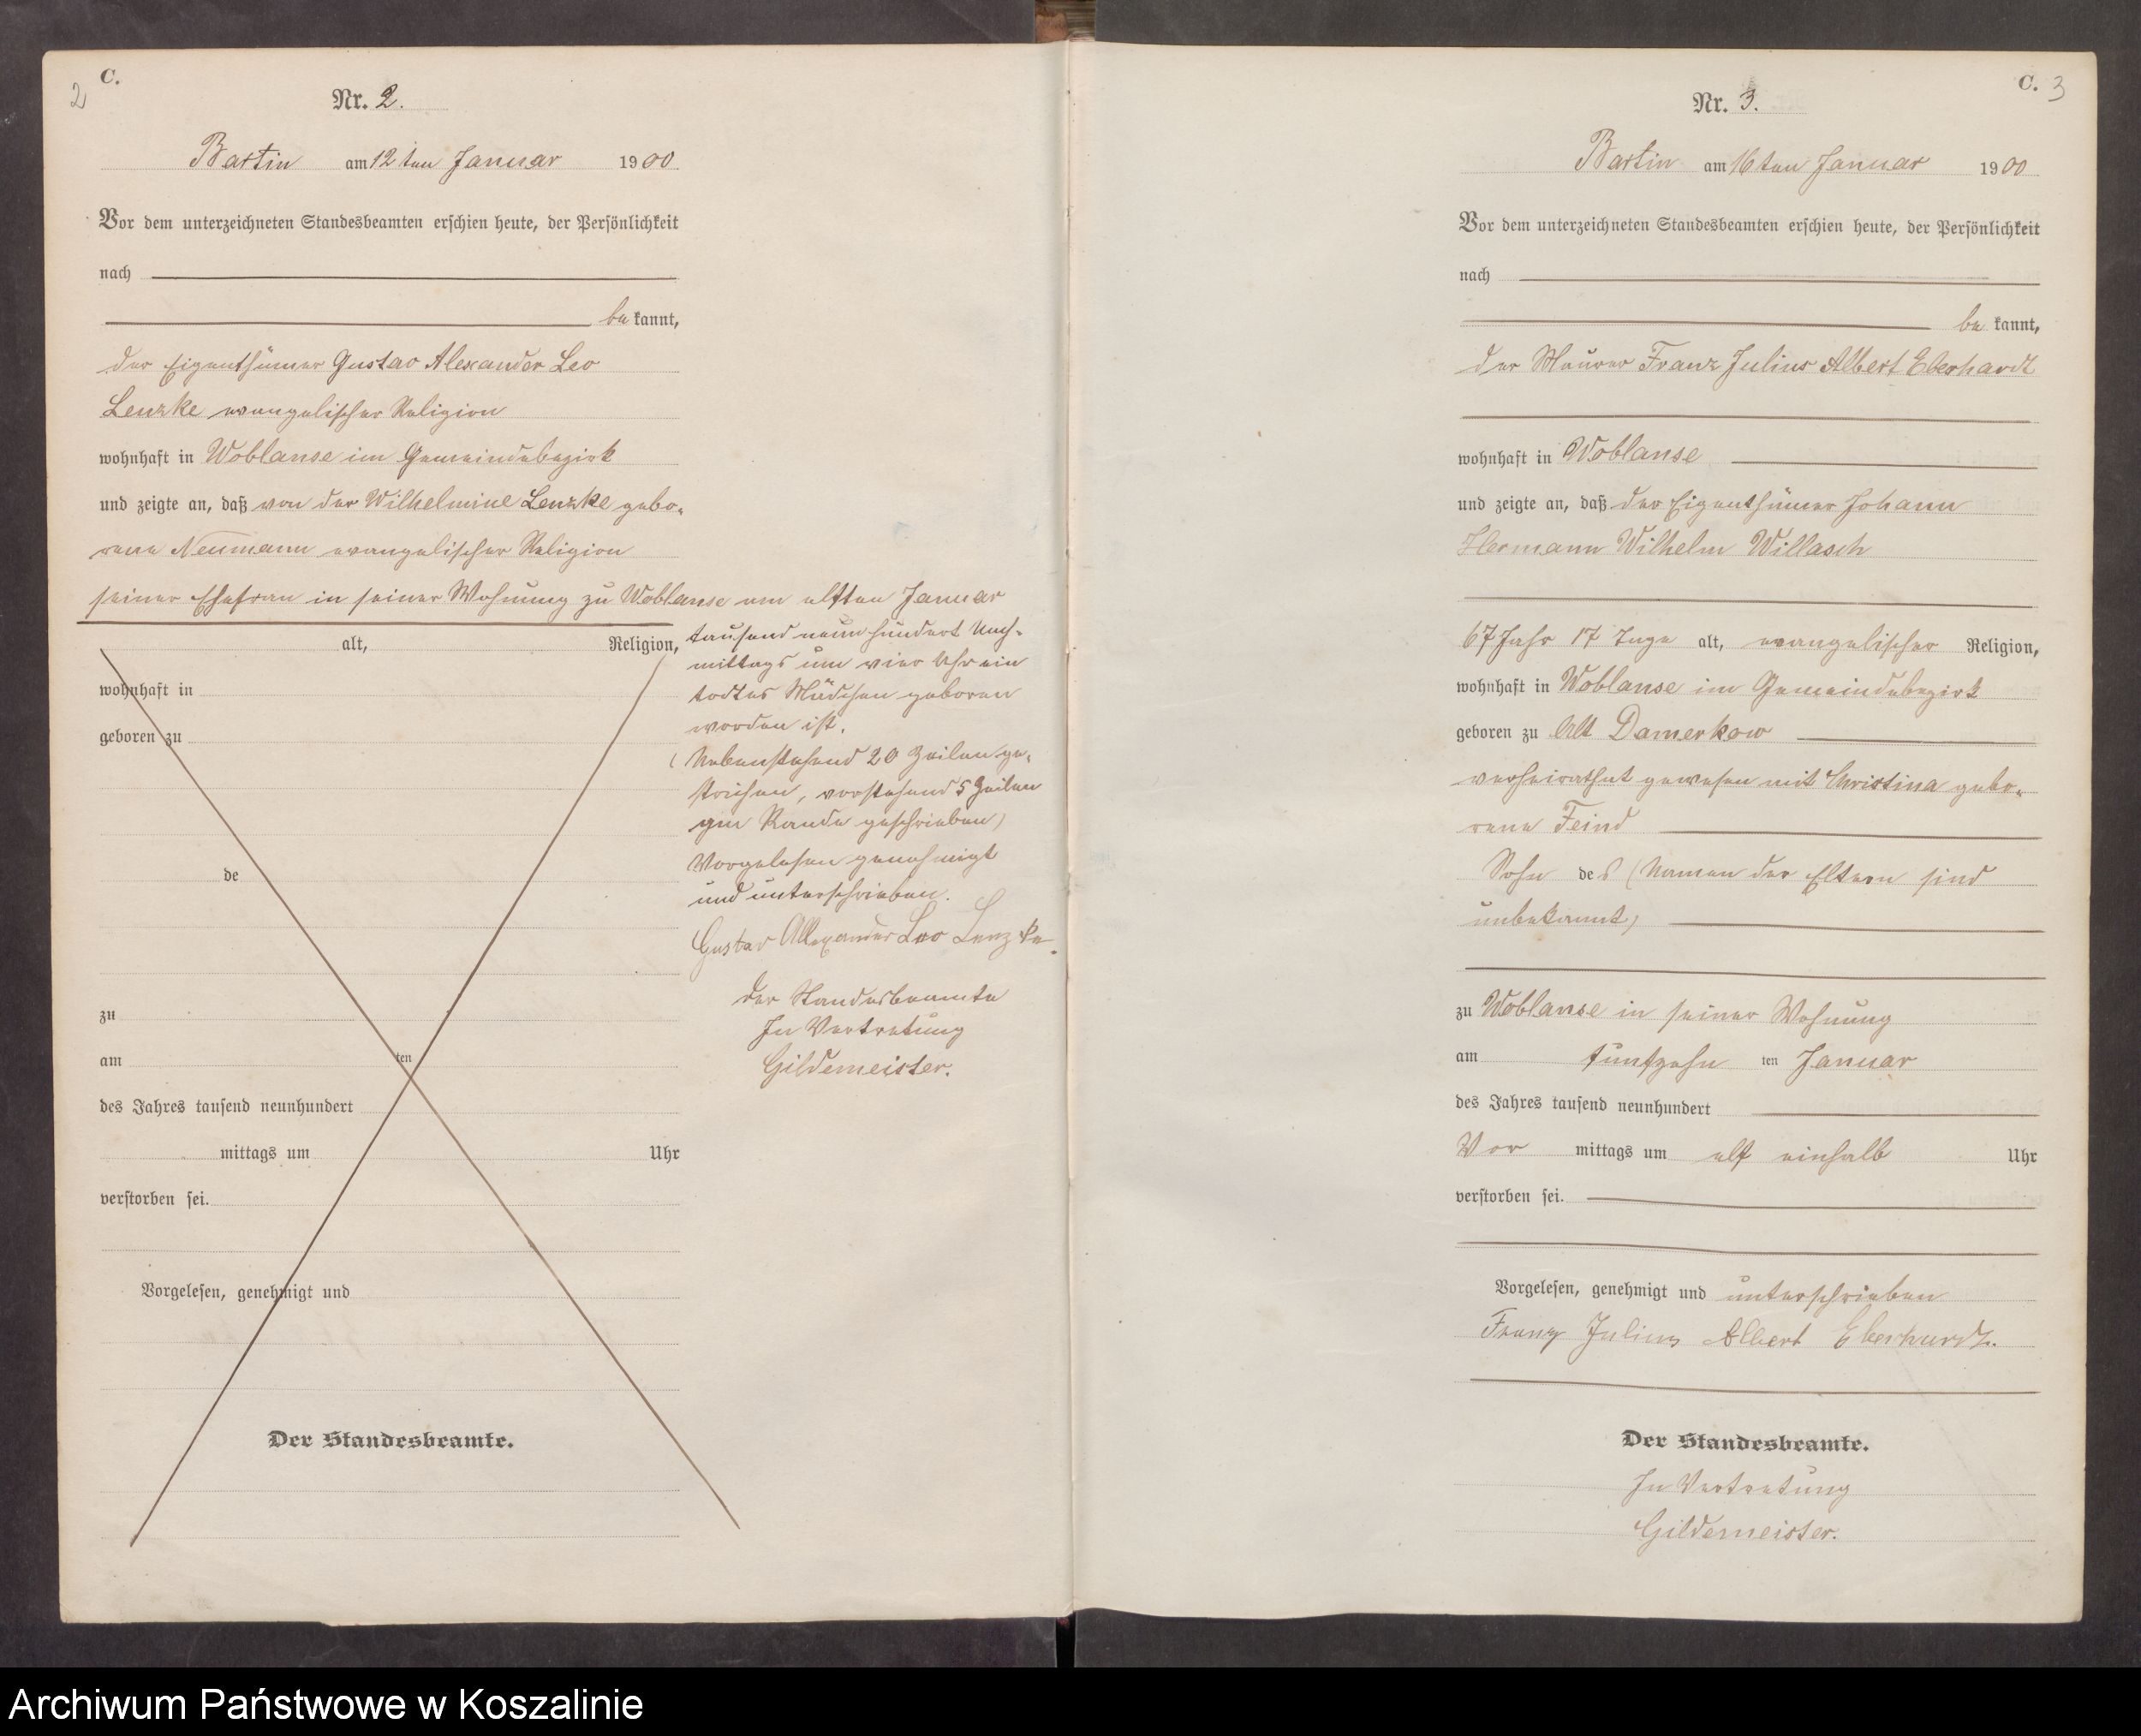 C.
2
Nr. 2.
Bartin am 12 ten Januar 1900
Vor dem unterzeichneten Standesbeamten erschien heute, der Persönlichkeit
nach
be kannt,
der Eigenthümer Gustav Alexander Leo
Lenzke evangelischer Religion
wohnhaft in Woblanse im Gemeindebezirk
und zeigte an, daß von der Wilhelmine Lenzke gebo-
rene Neumann evangelischer Religion
seiner Ehefrau in seiner Wohnung zu Woblanse am elften Januar
alt, Religion,
wohnhaft in
geboren zu
de
zu
am ten
des Jahres tausend neunhundert
mittags um Uhr
verstorben sei.
Vorgelesen, genehmigt und
Der Standesbeamte.
tausend neun hundert Nach-
mittags um vier Uhr ein
todtes Mädchen geboren
worden ist.
(Nebenstehend 20 Zeilen ge-
strichen, vorstehend 5 Zeilen
am Rande geschrieben)
Vorgelesen genehmigt
und unterschrieben.
Gustav Allexander Leo Lenzke.
Der Standesbeamte
In Vertretung
Gildemeister.
C. 3
Nr. 3.
Bartin am 16 ten Januar 1900
Vor dem unterzeichneten Standesbeamten erschien heute, der Persönlichkeit
nach
be kannt,
der Maurer Franz Julius Albert Eberhardt
wohnhaft in Woblanse
und zeigte an, daß der Eigenthümer Johann
Hermann Wilhelm Willasch
67 Jahr 17 Tage alt, evangelischer Religion,
wohnhaft in Woblanse im Gemeindebezirk
geboren zu Alt Damerkow
verheirathet gewesen mit Christina gebo-
rene Feind
Sohn des (Namen der Eltern sind
unbekannt)
zu Woblanse in seiner Wohnung
am fünfzehn ten Januar
des Jahres tausend neunhundert
Vor mittags um elf einhalb Uhr
verstorben sei.
Vorgelesen, genehmigt und unterschrieben
Franz Julius Albert Eberhardt.
Der Standesbeamte.
In Vertretung
Gildemeister.
Archiwum Państwowe w Koszalinie